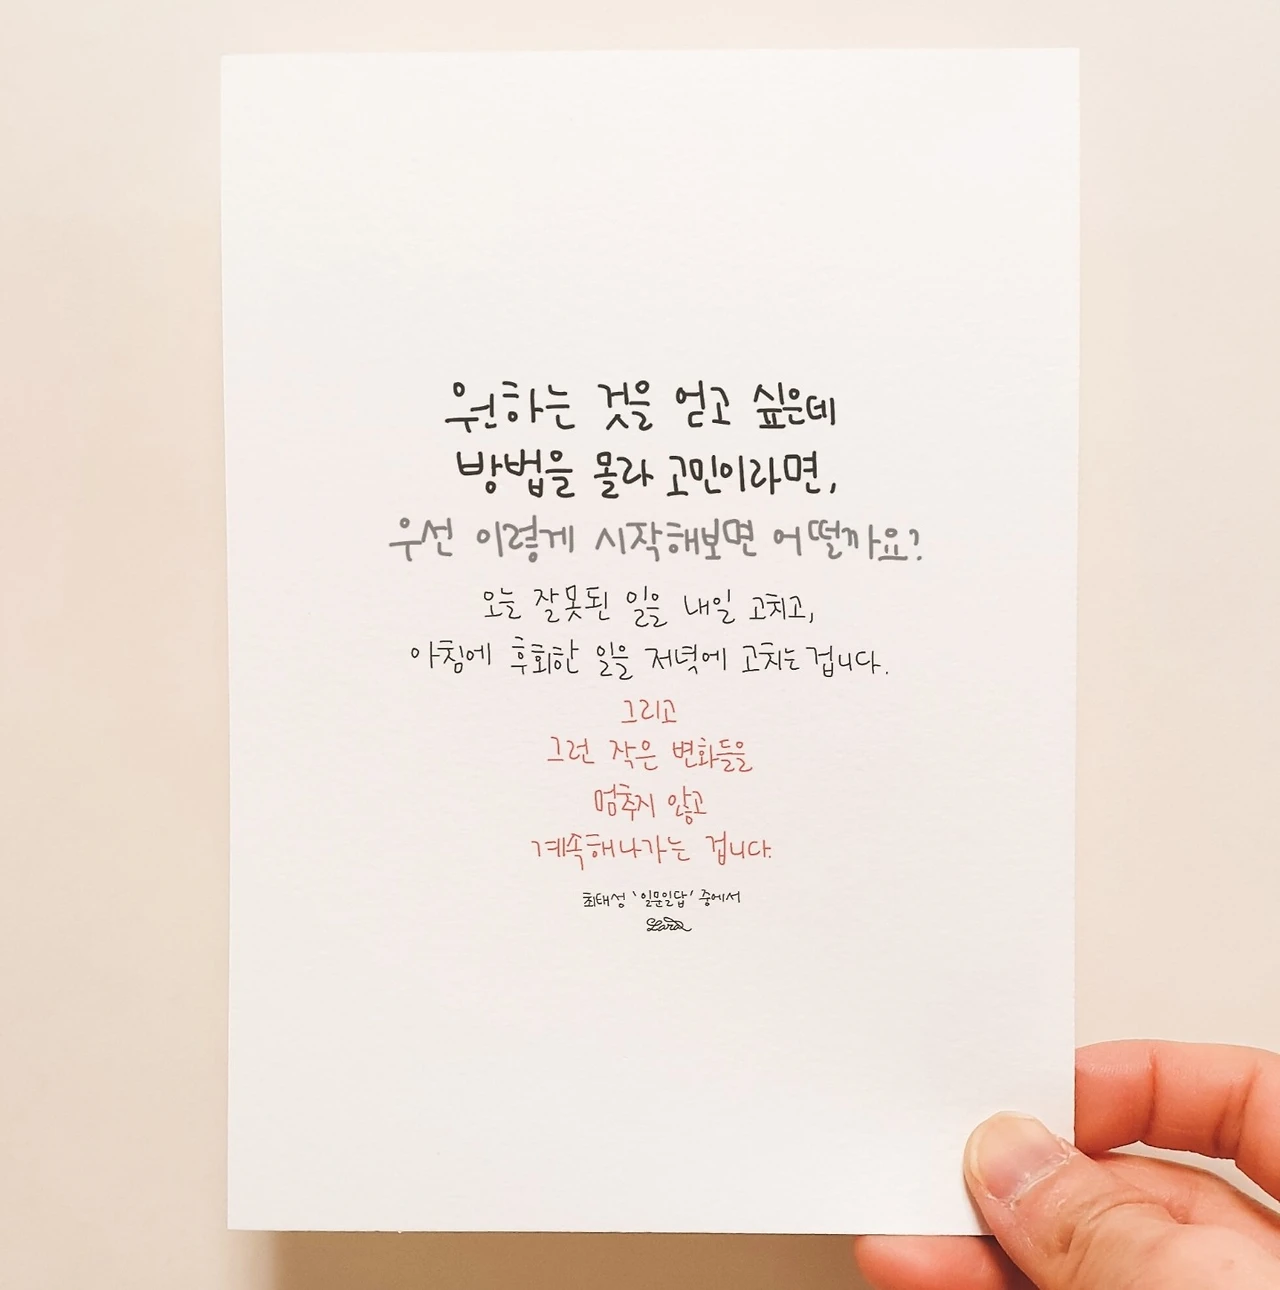 원하는 것을 얻고 싶은데
방법을 몰라 고민이라면,
우선 이렇게 시작해보면 어떨까요?
오늘 잘못된 일을 내일 고치고,
아침에 후회한 일을 저녁에 고치는 겁니다.
그리고
그런 작은 변화들을
멈추지 않고
계속해나가는 겁니다.
최태성 '일문일답' 중에서
Lara